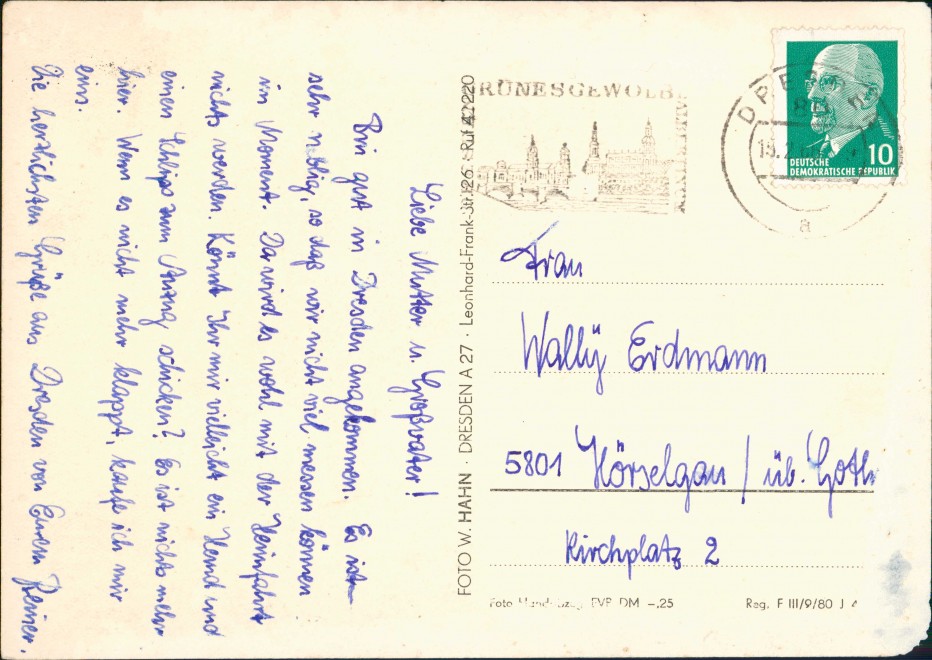 Liebe Mutter u. Großvater!
Bin gut in Dresden angekommen. Es ist
sehr neblig, so daß wir nicht viel messen können
im Moment. Da wird es wohl mit der Heimfahrt
nichts werden. Könnt Ihr mir vielleicht ein Hemd und
einen Schlips zum Anzug schicken? Es ist nichts mehr
hier. Wenn es nicht mehr klappt, kaufe ich mir
eins.
Die herzlichsten Grüße aus Dresden von Eurem Reiner.
FOTO W. HAHN · DRESDEN A 27 · Leonhard-Frank-Str. 126 · Ruf 42220
RÜNES GEWÖLB
DRESDEN
a
DEUTSCHE
DEMOKRATISCHE REPUBLIK
10
Frau
Wally Erdmann
5801 Hörselgau / üb. Goth
Kirchplatz 2
Foto EVP DM –.25
Reg. F III/9/80 J